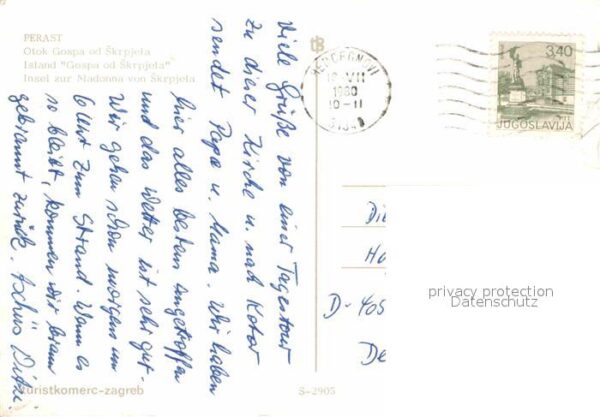 PERAST
Otok Gospa od Škrpjela
Island "Gospa od Škrpjela"
Insel zur Madonna von Škrpjela
Viele Grüße von einer Tagestour
zu dieser Kirche u. nach Kotor
sendet Papa u. Mama. Wir haben
hier alles bestens angetroffen
und das Wetter ist sehr gut.
Wir gehen schon morgens um
6 Uhr zum Strand. Wenn es
so bleibt, kommen wir braun
gebrannt zurück. Tschüs
turistkomerc-zagreb
S-2905
tB
HERCEGNOVI
VII
1980
10-11
3,40
JUGOSLAVIJA
Di
Ho
D-405
De
privacy protection
Datenschutz